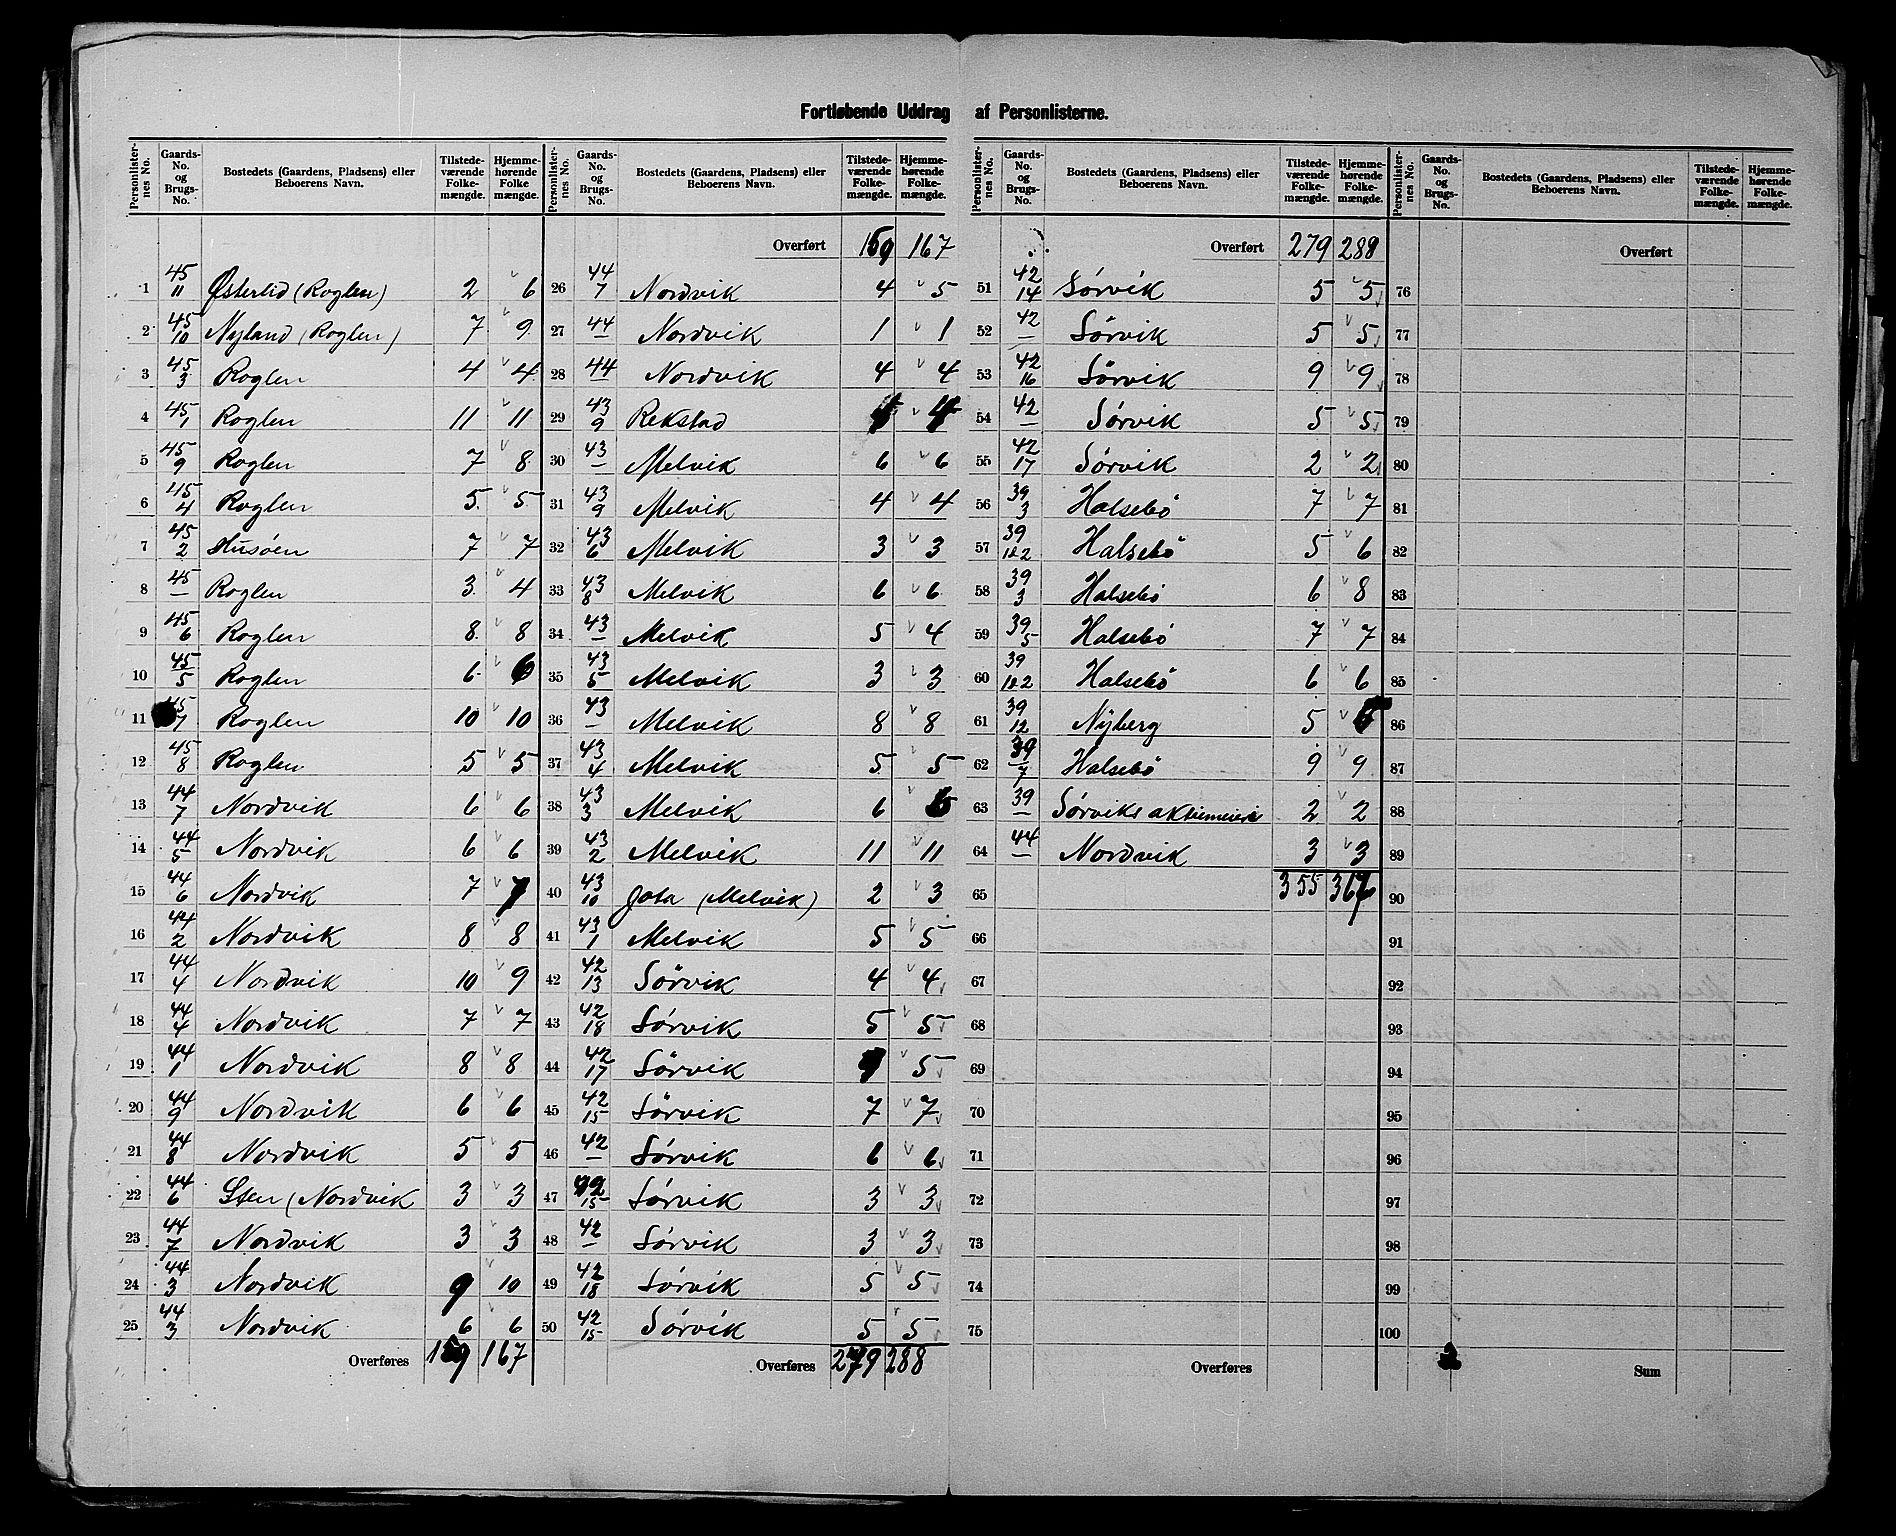 Fortløbende Uddrag af Personlisterne.
Personlisternes No. Gaards-No. og Brugs-No. Bostedets (Gaardens, Pladsens) eller Beboerens Navn. Tilstedeværende Folkemængde. Hjemmehørende Folkemængde.
1 45/11 Østerlid (Roglen) 2 6
2 45/10 Nyland (Roglen) 7 9
3 45/3 Roglen 4 4
4 45/1 Roglen 11 11
5 45/9 Roglen 7 8
6 45/4 Roglen 5 5
7 45/2 Husøen 7 7
8 45/— Roglen 3 4
9 45/6 Roglen 8 8
10 45/5 Roglen 6 6
11 45/7 Roglen 10 10
12 45/8 Roglen 5 5
13 44/7 Nordvik 6 6
14 44/5 Nordvik 6 6
15 44/6 Nordvik 7 7
16 44/2 Nordvik 8 8
17 44/4 Nordvik 10 9
18 44/4 Nordvik 7 7
19 44/1 Nordvik 8 8
20 44/9 Nordvik 6 6
21 44/8 Nordvik 5 5
22 44/6 Sten (Nordvik 3 3
23 44/7 Nordvik 3 3
24 44/3 Nordvik 9 10
25 44/3 Nordvik 6 6
Overføres 159 167
Personlisternes No. Gaards-No. og Brugs-No. Bostedets (Gaardens, Pladsens) eller Beboerens Navn. Tilstedeværende Folkemængde. Hjemmehørende Folkemængde.
Overført 159 167
26 44/7 Nordvik 4 5
27 44/— Nordvik 1 1
28 44/— Nordvik 4 4
29 43/9 Rekstad 4
30 43/— Melvik 6 6
31 43/9 Melvik 4 4
32 43/6 Melvik 3 3
33 43/8 Melvik 6 6
34 43/— Melvik 5 4
35 43/5 Melvik 3 3
36 43/— Melvik 8 8
37 43/4 Melvik 5 5
38 43/3 Melvik 6 6
39 43/2 Melvik 11 11
40 43/10 Jota (Melvik) 2 3
41 43/1 Melvik 5 5
42 42/13 Sörvik 4 4
43 42/18 Sórvik 5 5
44 42/17 Sörvik 5
45 42/15 Sörvik 7 7
46 42/— Sórvik 6 6
47 42/15 Sórvik 3 3
48 42/— Sórvik 3 3
49 42/18 Sórvik 5 5
50 42/15 Sórvik 5 5
Overføres 279 288
Personlisternes No. Gaards-No. og Brugs-No. Bostedets (Gaardens, Pladsens) eller Beboerens Navn. Tilstedeværende Folkemængde. Hjemmehørende Folkemængde.
Overført 279 288
51 42/14 Sórvik 5 5
52 42/— Sórvik 5 5
53 42/16 Sörvik 9 9
54 42/— Sórvik 5 5
55 42/17 Sórvik 2 2
56 39/3 Halsebö 7 7
57 39/1&2 Halsebö 5 6
58 39/3 Halsebó 6 8
59 39/5 Halsebó 7 7
60 39/1&2 Halsebö 6 6
61 39/12 Nyberg 5
62 39/7 Halsebö 9 9
63 39/— Sórviks aktiemeieri 2 2
64 44/— Nordvik 3 3
65 355 367
66
67
68
69
70
71
72
73
74
75
Overføres
Personlisternes No. Gaards-No. og Brugs-No. Bostedets (Gaardens, Pladsens) eller Beboerens Navn. Tilstedeværende Folkemængde. Hjemmehørende Folkemængde.
Overført
76
77
78
79
80
81
82
83
84
85
86
87
88
89
90
91
92
93
94
95
96
97
98
99
100
Sum